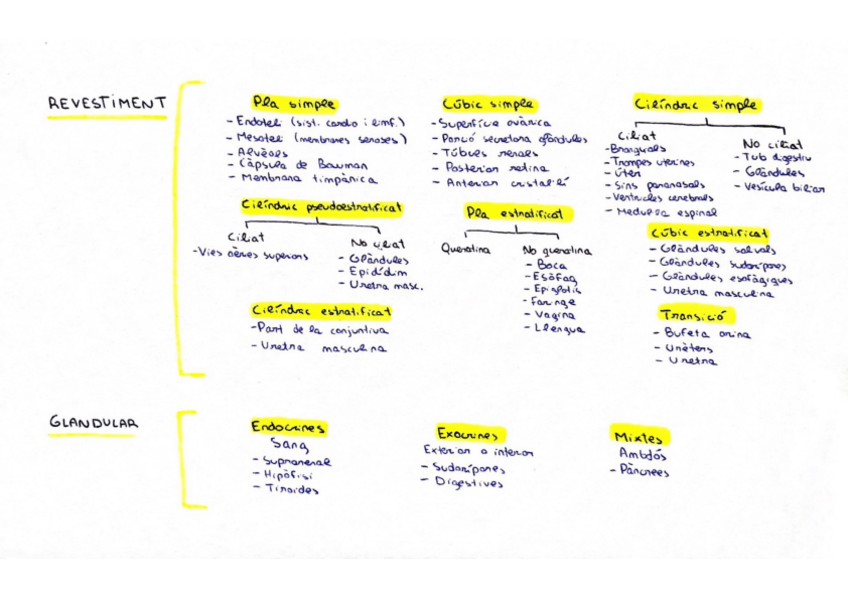 REVESTIMENT
Pla simple
- Endoteli (sist. cardio i limf.)
- Mesoteli (membranes seroses)
- Alvèols
- Càpsula de Bowman
- Membrana timpànica
Cúbic simple
- Superfície ovàrica
- Porció secretora glàndules
- Túbuls renals
- Posterior retina
- Anterior cristal·lí
Cilíndric simple
Ciliat
- Bronquials
- Trompes uterines
- Úter
- Sins paranasals
- Ventricles cerebrals
- Medul·la espinal
No ciliat
- Tub digestiu
- Glàndules
- Vesícula biliar
Cilíndric pseudoestratificat
Ciliat
- Vies aèries superiors
No ciliat
- Glàndules
- Epidídim
- Uretra masc.
Pla estratificat
Queratina
No queratina
- Boca
- Esòfag
- Epiglotis
- Faringe
- Vagina
- Llengua
Cúbic estratificat
- Glàndules salivals
- Glàndules sudorípares
- Glàndules esofàgiques
- Uretra masculina
Cilíndric estratificat
- Part de la conjuntiva
- Uretra masculina
Transició
- Bufeta orina
- Urèters
- Uretra
GLANDULAR
Endocrines
Sang
- Suprarenal
- Hipòfisi
- Tiroides
Exocrines
Exterior o interior
- Sudorípares
- Digestives
Mixtes
Ambdós
- Pàncrees